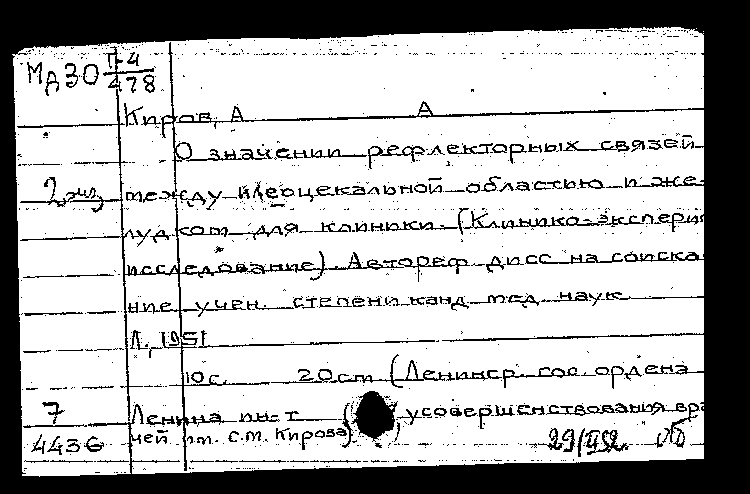 МдЗО П-4/478
Киров, А А
О значении рефлекторных связей
2 экз между илеоцекальной областью и же-
лудком для клиники. (Клинико-экспери
исследование) Автореф дисс на соиска
ние учен. степени канд мед наук
Л., 1951
10 с. 20 см (Ленингр. гос. ордена
7 Ленина ин-т ( усовершенствования вра
4436 чей им. С.М. Кирова)
29/